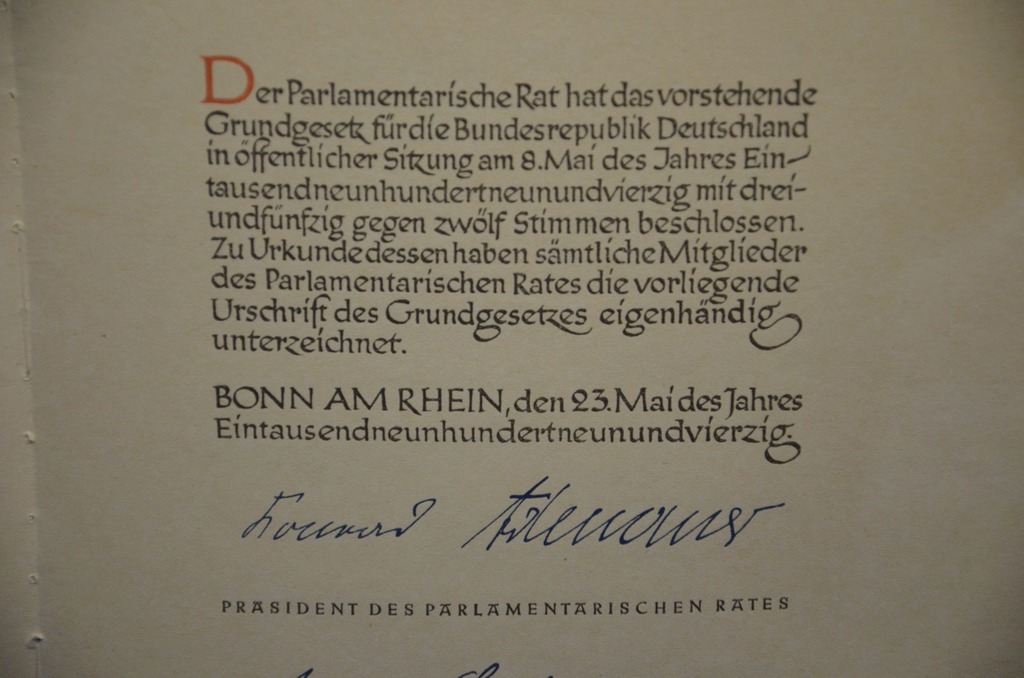 Der Parlamentarische Rat hat das vorstehende
Grundgesetz für die Bundesrepublik Deutschland
in öffentlicher Sitzung am 8. Mai des Jahres Ein-
tausendneunhundertneunundvierzig mit drei-
undfünfzig gegen zwölf Stimmen beschlossen.
Zu Urkunde dessen haben sämtliche Mitglieder
des Parlamentarischen Rates die vorliegende
Urschrift des Grundgesetzes eigenhändig
unterzeichnet.
BONN AM RHEIN, den 23. Mai des Jahres
Eintausendneunhundertneunundvierzig.
Konrad Adenauer
PRÄSIDENT DES PARLAMENTARISCHEN RATES